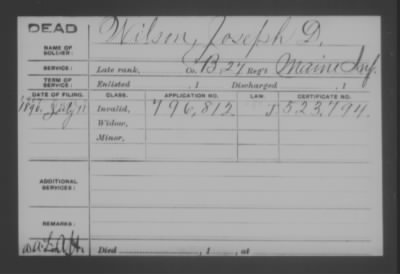 DEAD
NAME OF SOLDIER: Wilson, Joseph D.
SERVICE: Late rank, Co. B, 27 Reg't Maine Inf.
TERM OF SERVICE: Enlisted , 1 Discharged , 1
DATE OF FILING. CLASS. APPLICATION NO. LAW. CERTIFICATE NO.
1890, July 11 Invalid, 796,812 J 523,794.
Widow,
Minor,
ADDITIONAL SERVICES:
REMARKS:
Died , 1 , at